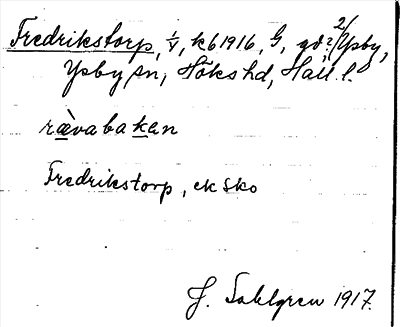 Fredrikstorp, 1/V, k61916, G, gd?, 2/Ysby,
Ysby sn, Höks hd, Hall. l.
rævabakan
Fredrikstorp, ek Sko
J. Sahlgren 1917.